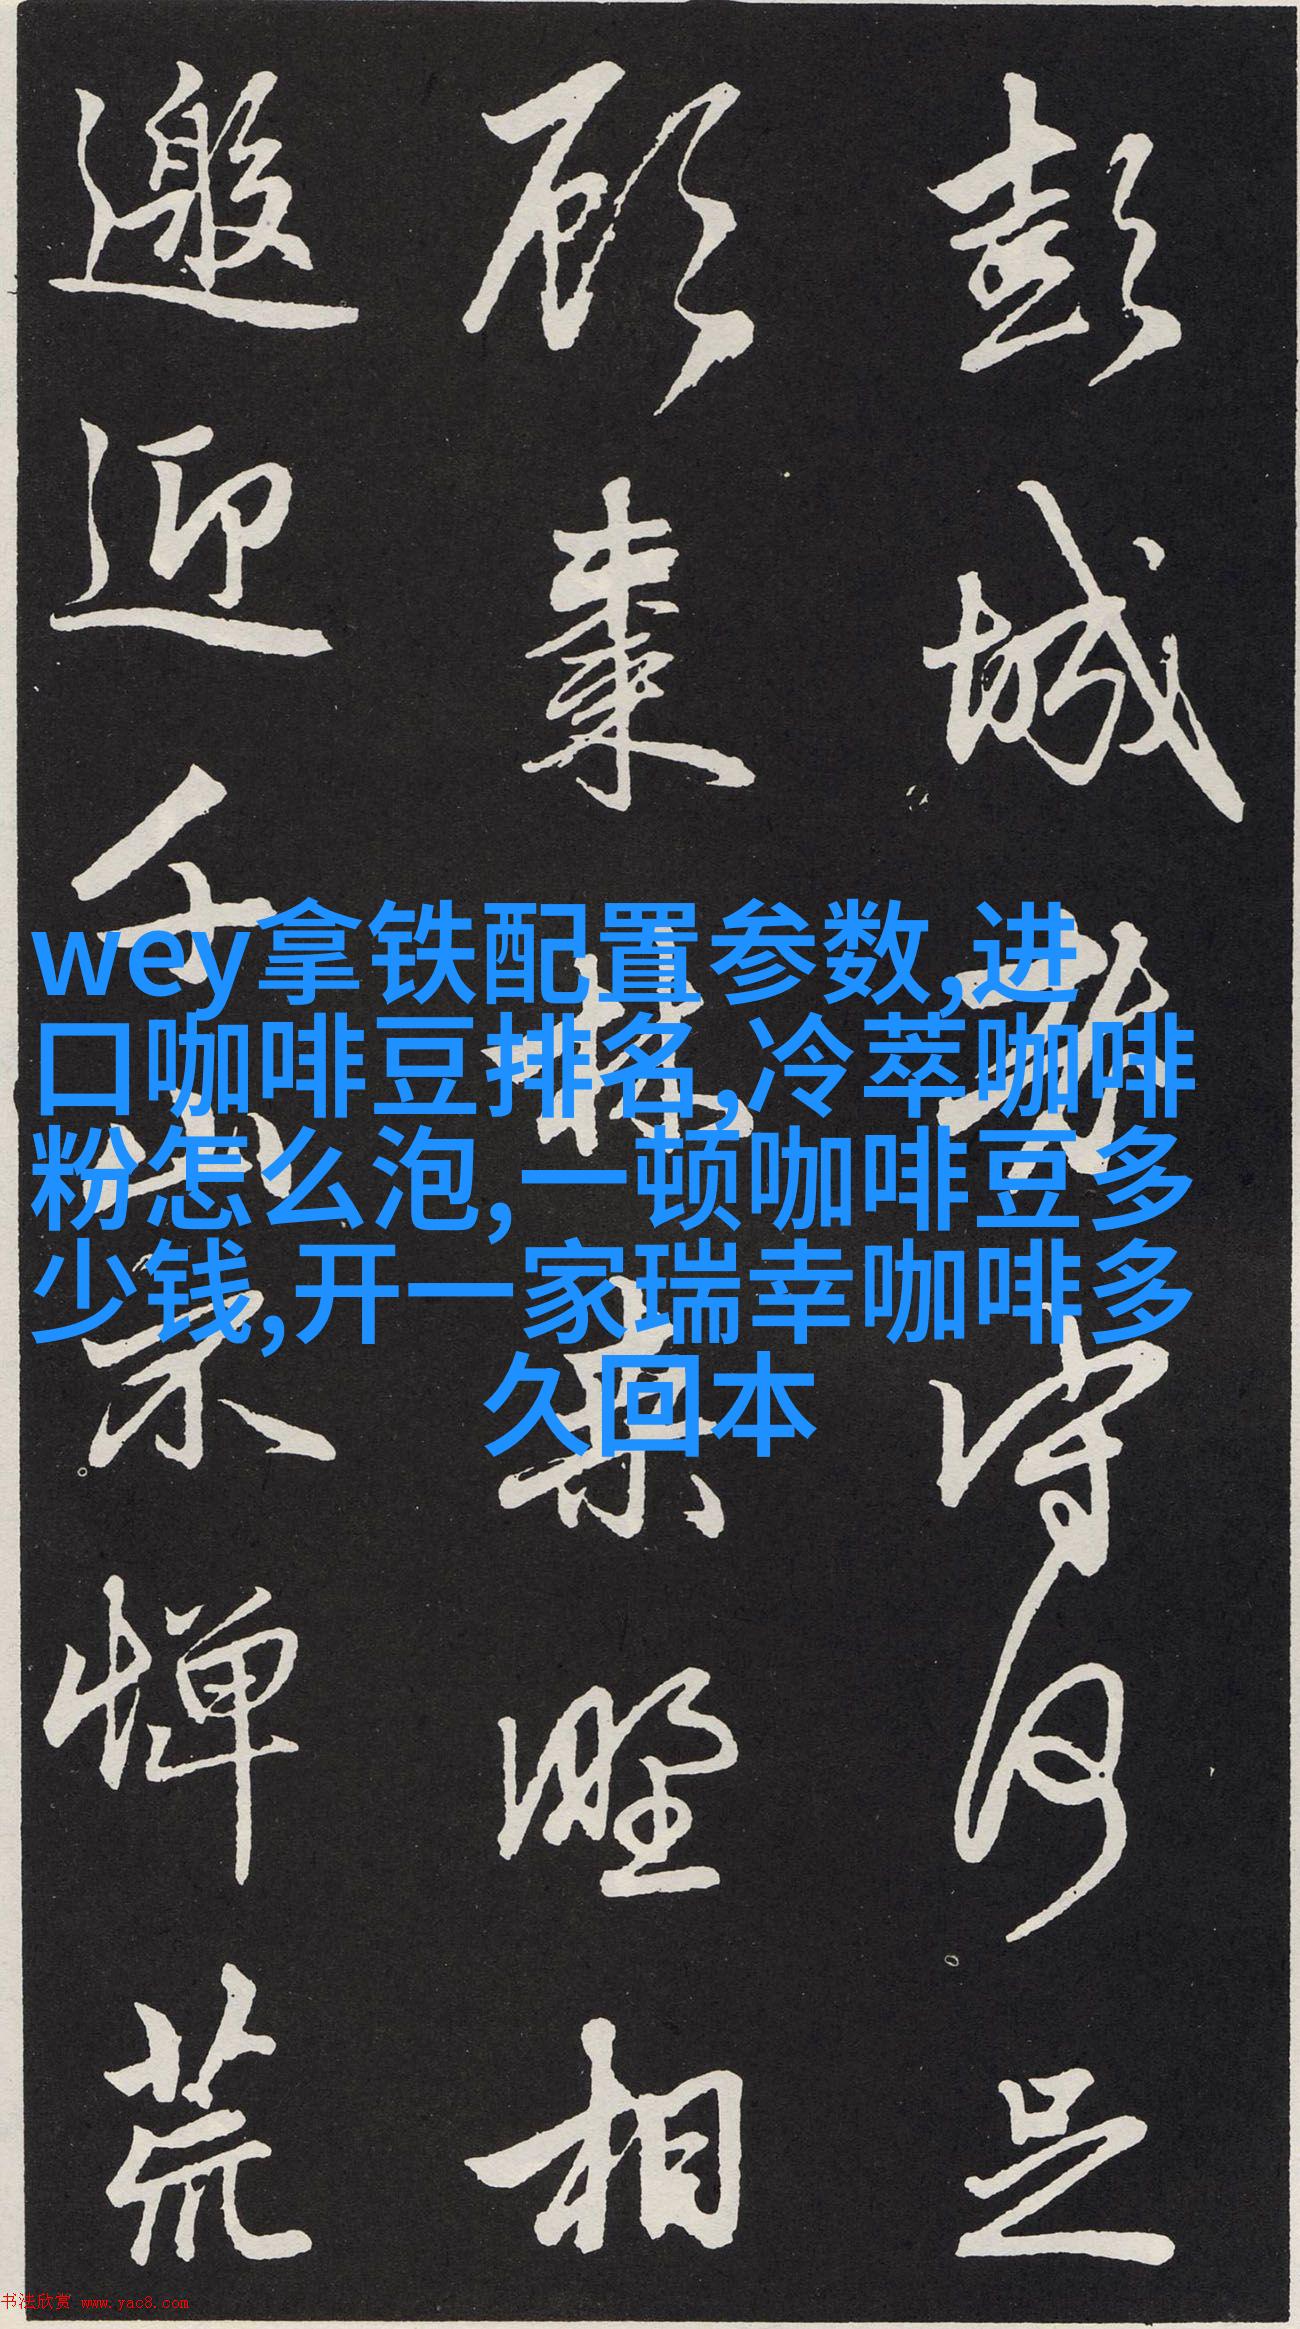 彭城老守何足
顧棗林桑野相
邀迎千山不憚荒
wey拿铁配置参数,进
口咖啡豆排名,冷萃咖啡
粉怎么泡,一顿咖啡豆多
少钱,开一家瑞幸咖啡多
久回本
书法欣赏 www.yac8.com